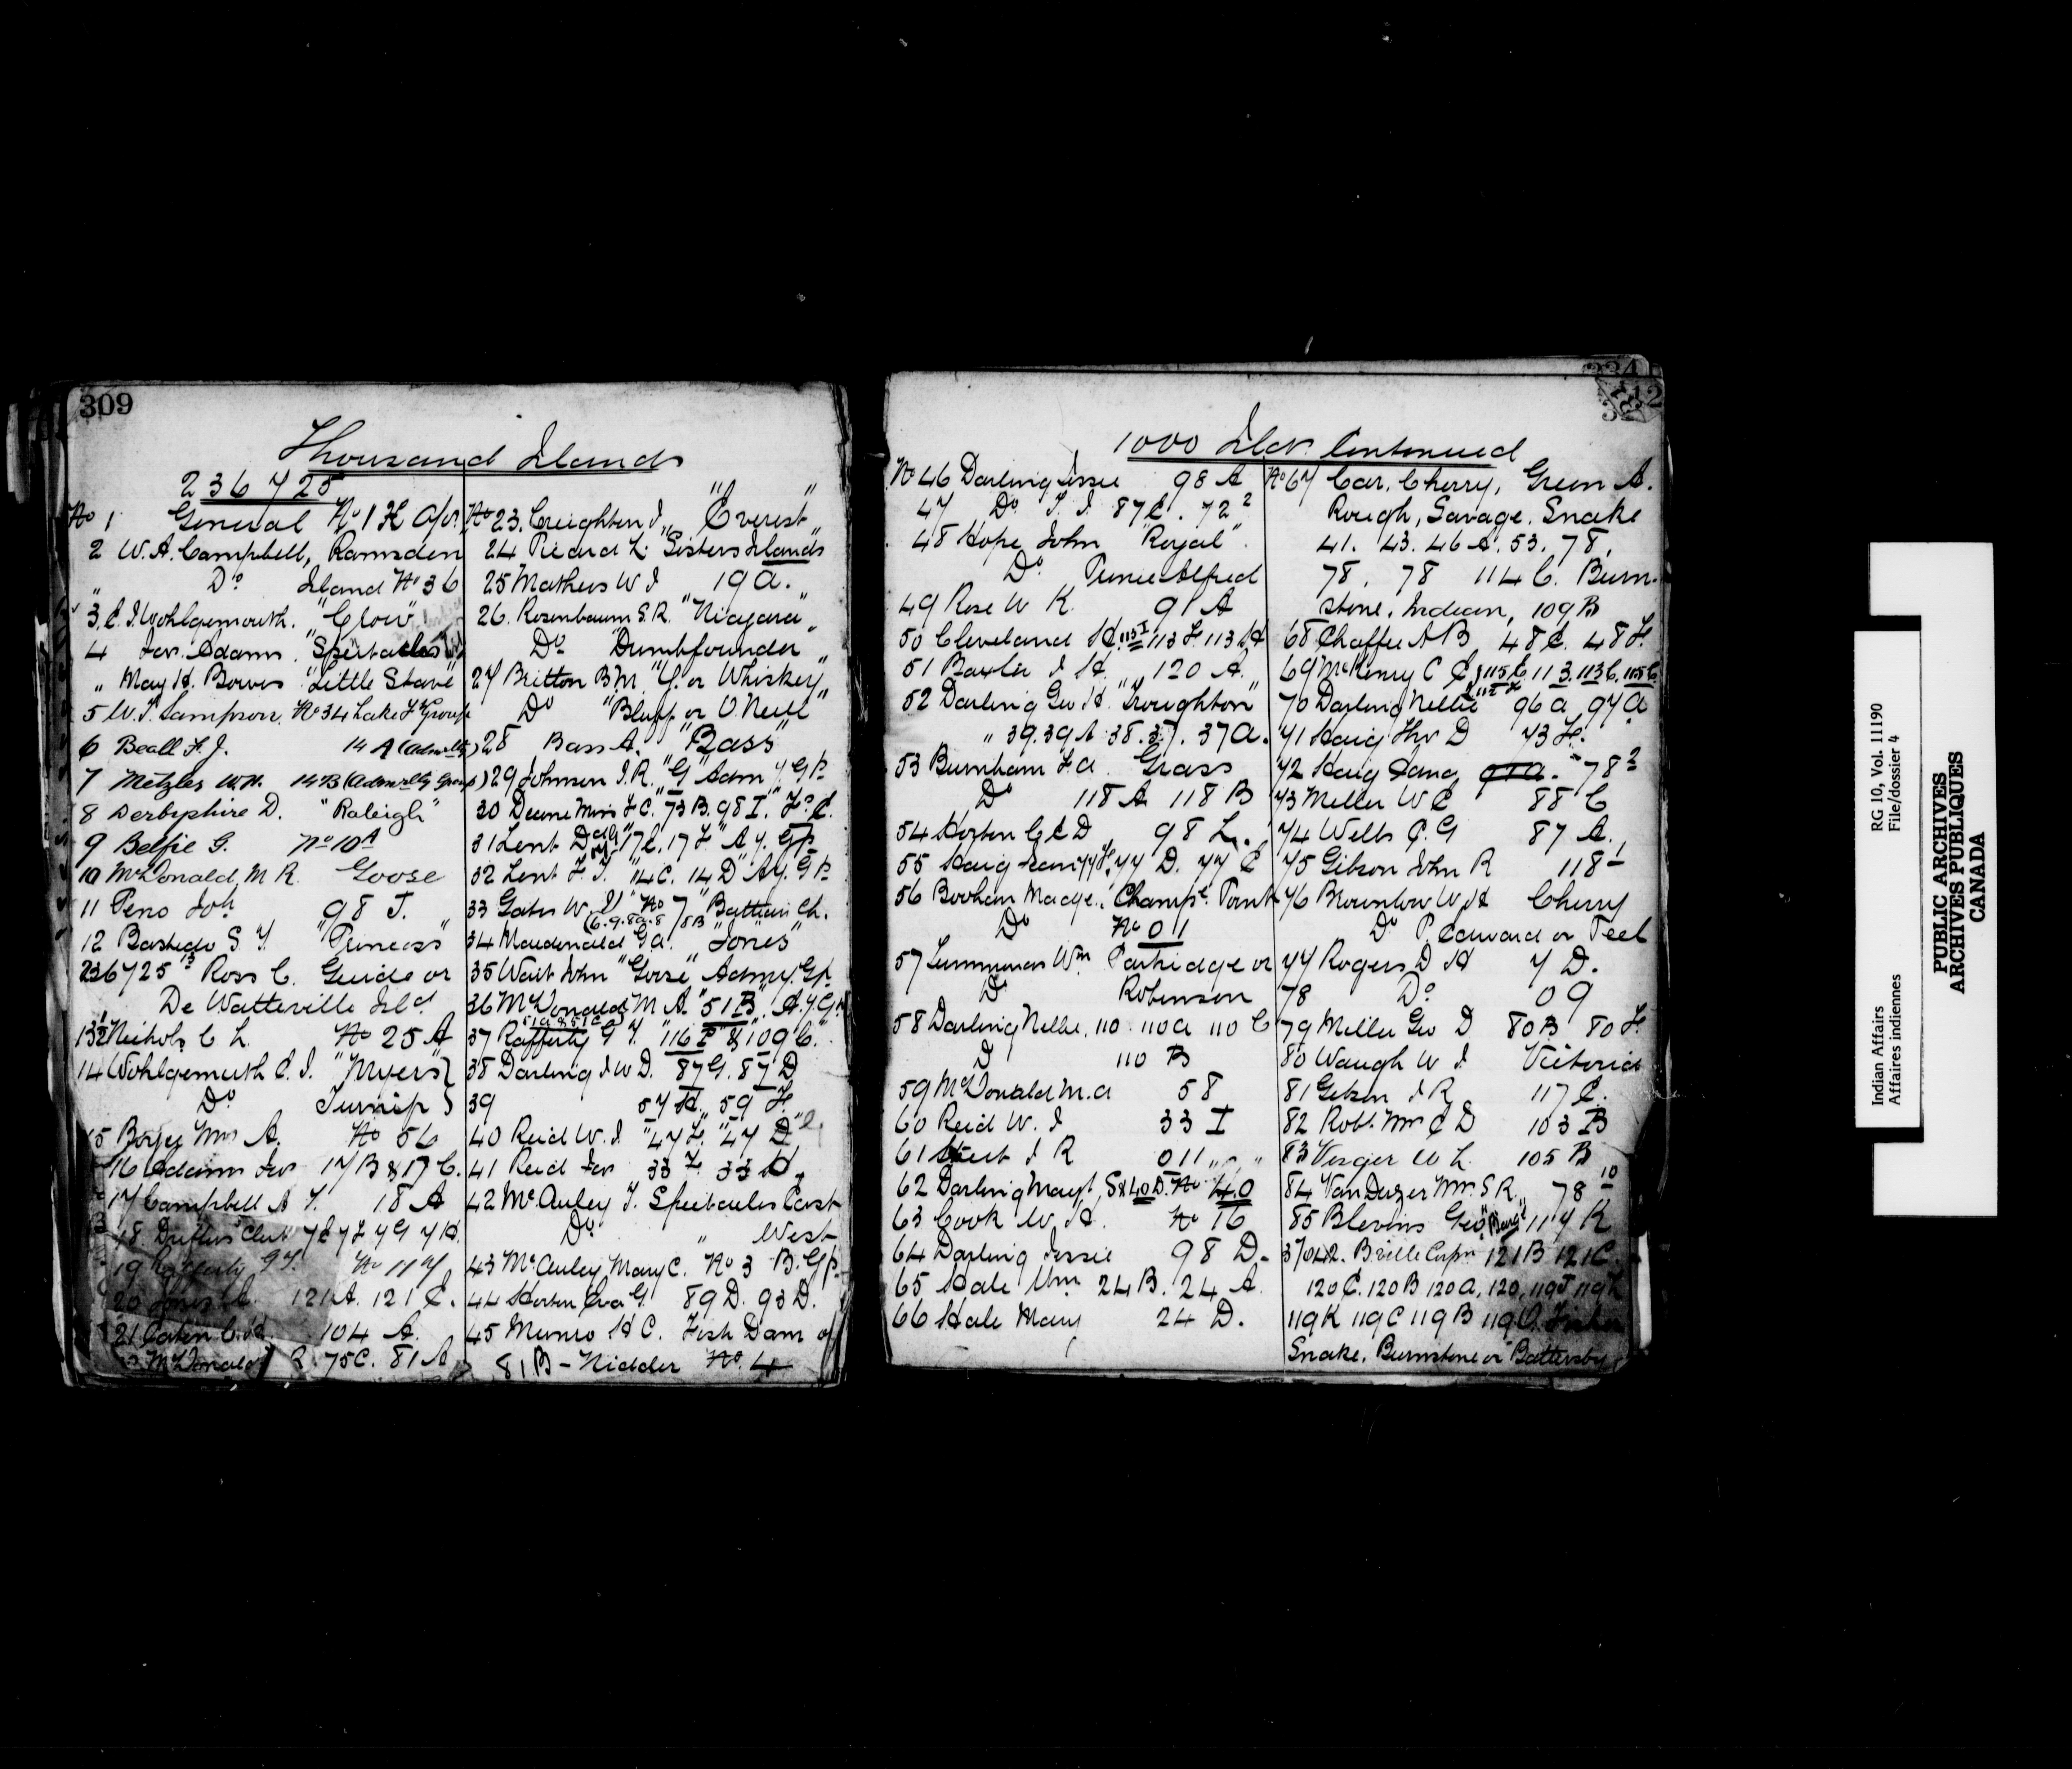 309
Thousand Islands
236725
No 1 General No 1 H
2 W. A. Campbell, Ramsden
" Do Island No 36
3 E. J. Wohlgemouth. "Clow"
4 Jas. Adams. Spectacles
" May H. Bowes "Little Stave"
5 W. J. Sampson. No 34 Lake F Group
6 Beall F. J. 14 A (Admrlty)
7 Metzler W. H. 14B (Admrlty Group)
8 Derbyshire D. "Raleigh"
9 Belfie G. No 10A
10 McDonald M R. Goose
11 Peno Joh 98 J.
12 Bastedo S T. "Princess"
236725 13 Ross C. Guide or
De Watteville Isld
13½ Nichols C L. No 25 A
14 Wohlgemuth E. J. "Myers"
Do Turnip
15 Boyce Mrs A. No 56
16 Adams Jas 17B & 17 C.
17 Campbell A T. 18 A
18. Drifters Club 7E 7F 7G 7H.
19 Rafferty G T. No 117
20 121A. 121 E.
21 Eaton C. H. 104 A.
McDonald R. 75C. 81 A
No 23. Creighton J. "Everest"
24 Picard L. Sisters Islands
25 Mathers W J 19 a.
26. Rosenbaum S. R. "Niagara"
Do "Dumbfounder"
27 Britton B. M. "G. or Whiskey"
Do "Bluff or O'Neill"
28 Bass A. "Bass"
29 Johnson J. R. "G" Adm'y. GP.
30 Deane Miss F C. 73 B. 98 I.
31 Lent D 17 C, 17 F A'y. GP
32 Lent F. T. 14 C. 14 D A'y. GP
33 Gates W. No 7 Batteau Ch.
(6. 9. 8a. 8 8B
34 Macdonald G a. "Jones"
35 Wait John "Goose" Admy. Gp.
36 McDonald M A. "51B". A'y G
51a & 51C
37 Rafferty G T. "116 E & 109 C."
38 Darling J W D. 87 G. 87 D
39 57 H. 59 F.
40 Reid W. J. "47 F. "47 D"
41 Reid Jas 33 F 33 H.
42 McAuley T. Spectacles East
Do " West
43 McAuley Mary C. No 3 B. Gp.
44 Horton Eva G. 89 D. 93 D.
45 Munro H C. Fish Dam of
81 B - Kidder No. 4
1000 Isds. Continued
No 46 Darling Jessie 98 A
47 Do T. J. 87 E. 72 2
48 Hope John "Royal".
Do Prince Alfred
49 Rose W K. 91 A
50 Cleveland H. 113 I 113 F 113 H
51 Baxter J H. 120 A.
52 Darling Geo H. "Troughton"
" 39. 39 A 38. 37. 37 a.
53 Burnham F. a. Grass
Do 118 A 118 B
54 Horton C E D 98 L.
55 Haig Jean 77 F. 77 D. 77 E
56 Boohan Madge. Champe. Point
Do No 011
57 Lummenas Wm Partridge or
Do Robinson
58 Darling Nellie. 110. 110 a 110 C
D 110 B
59 McDonald M. a 58
60 Reid W. J. 33 I
61 Street J R 011
62 Darling Mayt. S & 40 D. No 40
63 Cook W. H. No 16
64 Darling Jessie 98 D.
65 Hale Wm 24 B. 24 A.
66 Hale Mary 24 D.
No 67 Car. Cherry, Green A.
Rough, Savage. Snake
41. 43. 46 A. 53. 78,
78. 78 114 C. Burn-
stone. Indian, 109 B
68 Chaffee A B 48 E. 48 F.
69 McKenry C E 115 C 113. 113 C. 105 C
70 Darling Nellie 96 a 97 a
71 Haig Thos D 73 F.
72 Haig Jane 78 2
73 Miller W E 88 C
74 Wells C. G 87 A.
75 Gibson John R 118 1
76 Brownlow W H Cherry
Do P Edward or Teel
77 Rogers D H 7 D.
78 Do 09
79 Miller Geo D 80 B 80 F
80 Waugh W J. Victoria
81 Gibson J R 117 E.
82 Robt. Mrs E D 103 B
83 Visger W L. 105 B
84 Van Duzer Mrs. S R. 78 10
85 Blevins Geo 117 K
37042. Corpn 121B 121C.
120 E. 120 B 120 a, 120, 119 J 119 L
119 K 119 C 119 B 119 O.
Snake. Burnstone or Battersby
PUBLIC ARCHIVES
ARCHIVES PUBLIQUES
CANADA
Indian Affairs RG 10, Vol. 11190
Affaires indiennes File/dossier 4